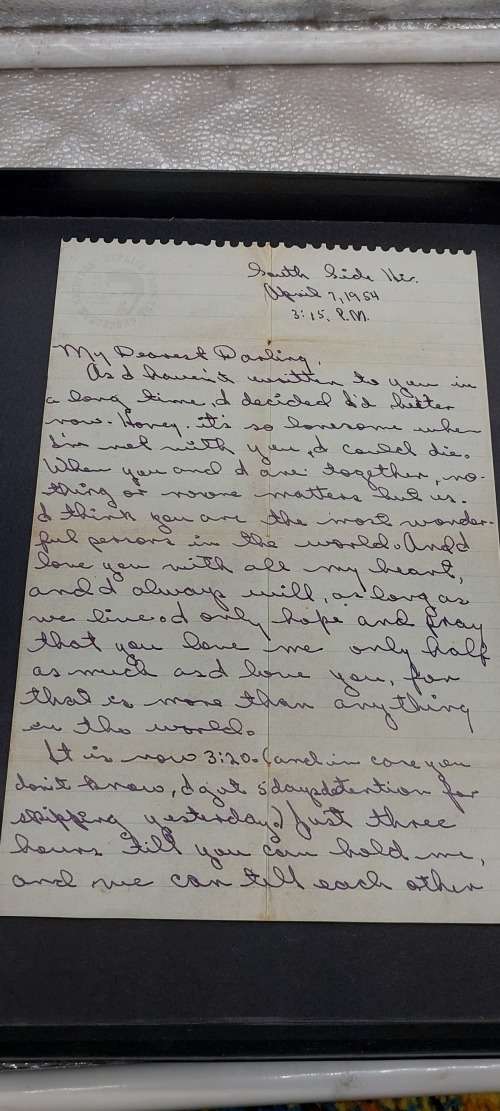 South Side Hi.
April 7, 1954
3:15. P.M.
My Dearest Darling,
As I haven't written to you in
a long time, I decided I'd better
now. Honey. it's so lonesome when
I'm not with you, I could die.
When you and I are together, no-
thing or noone matters but us.
I think you are the most wonder-
ful person in the world. And I
love you with all my heart,
and I always will, as long as
we live. I only hope and pray
that you love me only half
as much as I love you, for
that is more than anything
in the world.
It is now 3:20. (and in case you
don't know, I got 5 days detention for
skipping yesterday.) Just three
hours till you can hold me,
and we can tell each other